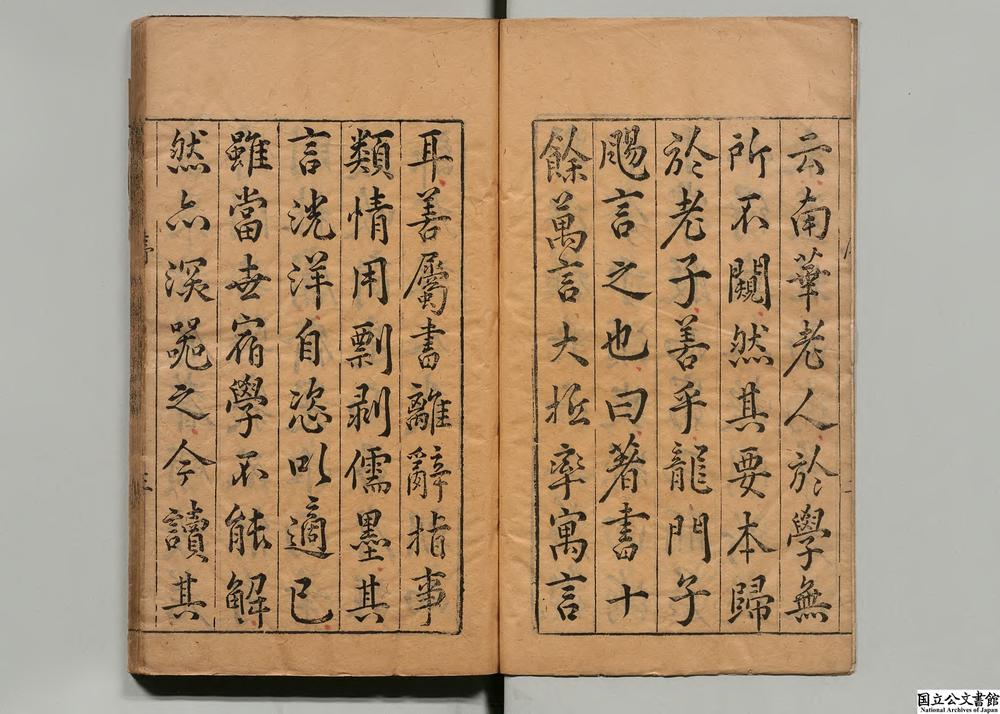 云南華老人於學無
所不闚然其要本歸
於老子善乎龍門子
賜言之也曰著書十
餘萬言大抵率寓言
耳善屬書離辭指事
類情用剽剥儒墨其
言洸洋自恣以適己
雖當世宿學不能解
然亦深
之今讀其
序
国立公文書館
National Archives of Japan